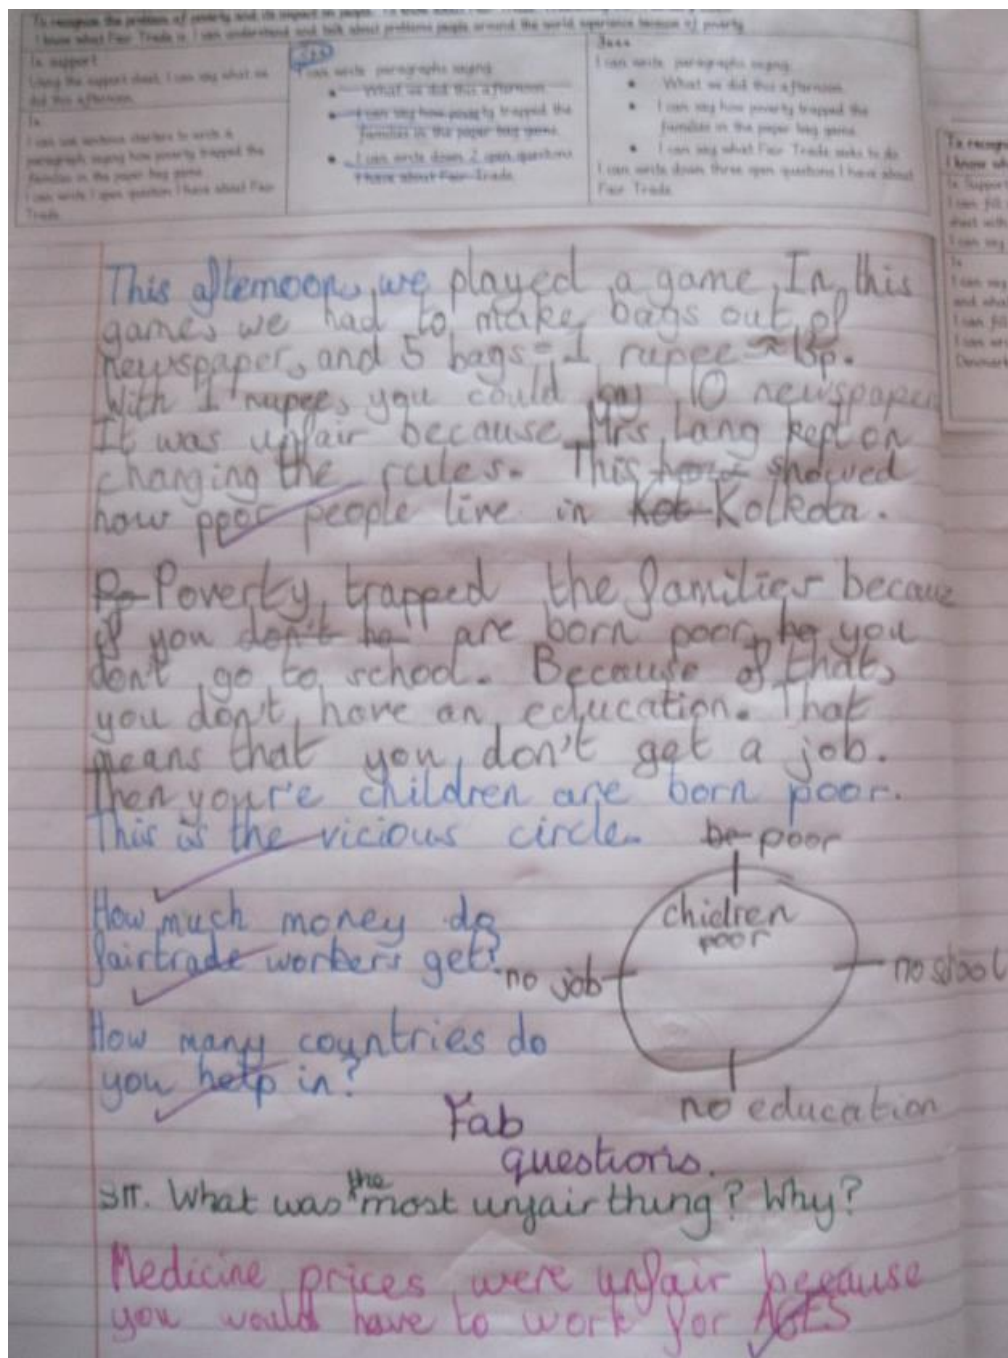 To recognise the problem of poverty and its impact on people. To know about Fair Trade
I know what Fair Trade is. I can understand and talk about problems people around the world experience because of poverty
1s support
Using the support sheet, I can say what we
did this afternoon.
1s
I can use sentence starters to write a
paragraph saying how poverty trapped the
families in the paper bag game.
I can write 1 open question I have about Fair
Trade.
I can write paragraphs saying
What we did this afternoon
I can say how poverty trapped the
families in the paper bag game.
I can write down 2 open questions
I have about Fair Trade.
I can write paragraphs saying
What we did this afternoon
I can say how poverty trapped the
families in the paper bag game.
I can say what Fair Trade seeks to do
I can write down three open questions I have about
Fair Trade.
This afternoon, we played a game. In this
game, we had to make bags out of
newspaper, and 5 bags = 1 rupee ≈ 1.5p.
With 1 rupee, you could buy 10 newspaper
It was unfair because Mrs Lang kept on
changing the rules. This showed
how poor people live in Kolkota.
Poverty trapped the families because
if you don't ha are born poor, he you
don't go to school. Because of that,
you don't have an education. That
means that you don't get a job.
Then you're children are born poor.
This is the vicious circle.
be poor
chidren
poor
no job
no shool
no education
How much money do
fairtrade workers get?
How many countries do
you help in?
Fab
questions.
SIT. What was the most unfair thing? Why?
Medicine prices were unfair because
you would have to work for AGES